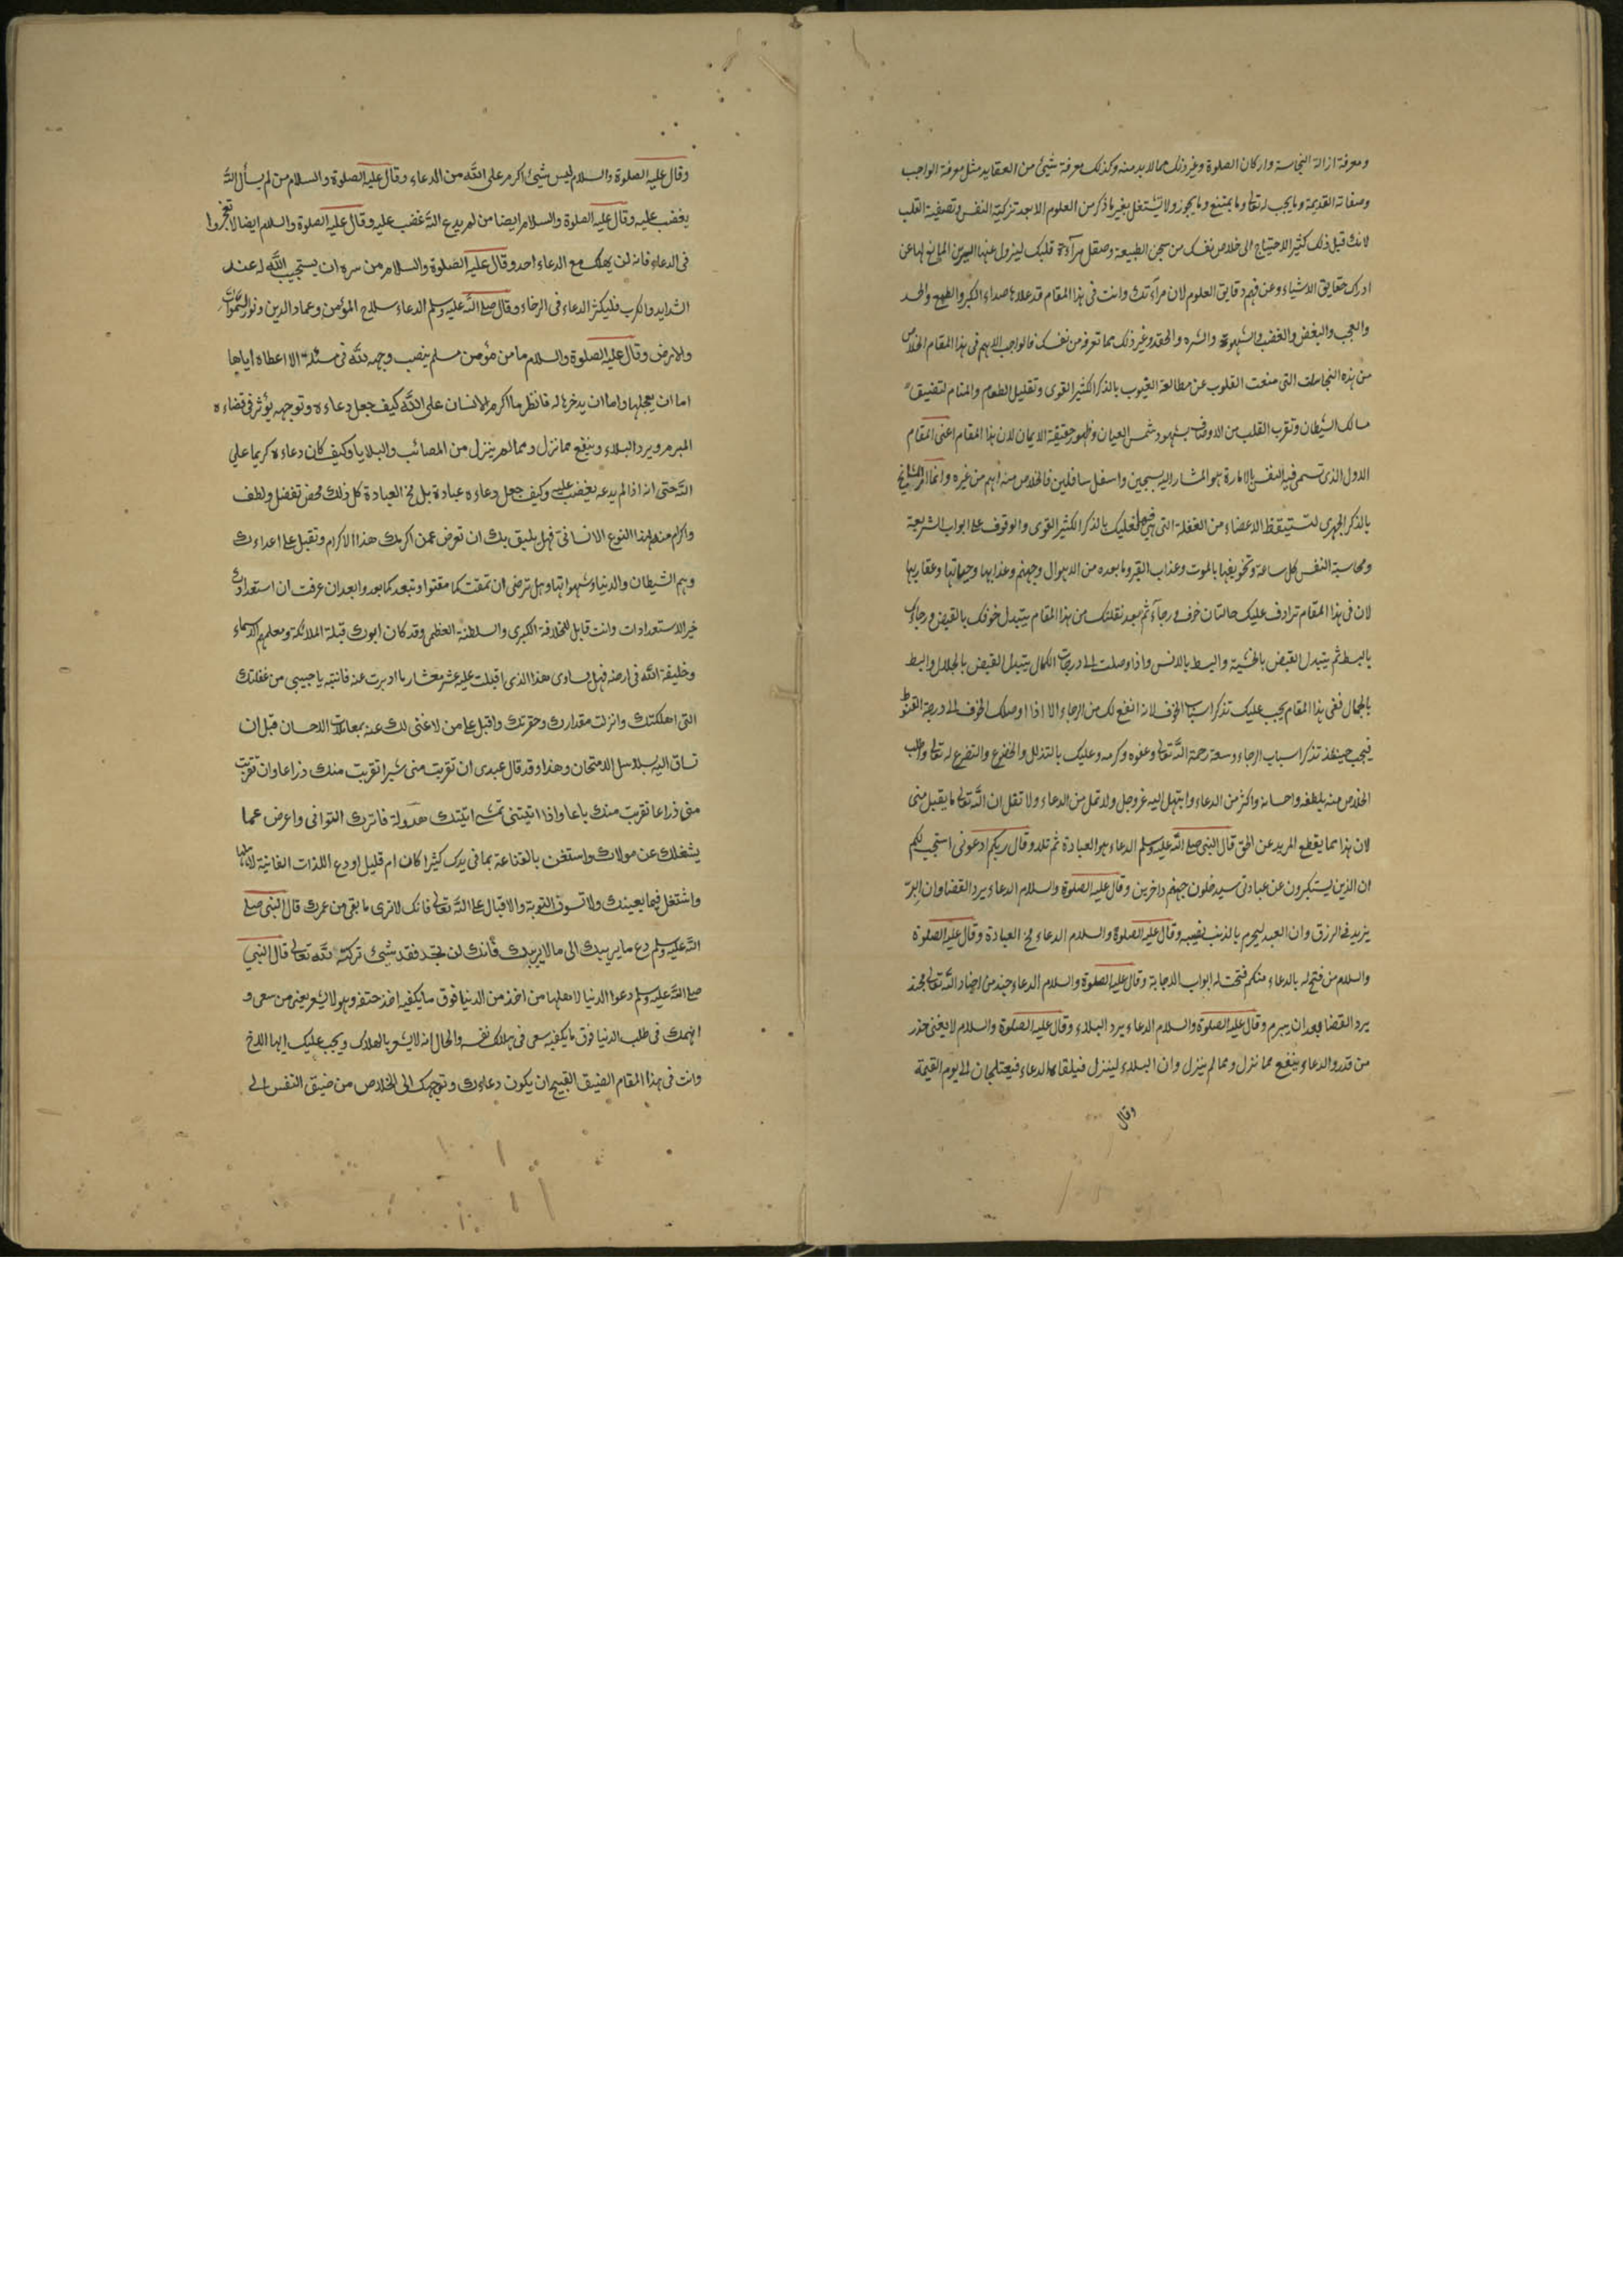 ومعرفة ازالة النجاسة واركان الصلوة وغير ذلك مما لا بد منه وكذلك معرفة شيئ من العقايد مثل معرفة الواجب
وصفاته القديمة وما يجب له تعالى وما يمتنع وما يجوز ولا تشتغل بغير ما ذكر من العلوم الا بعد تزكية النفس وتصفية القلب
لانك قبل ذلك كثير الاحتياج الى خلاص نفسك من سجن الطبيعة وصقل مرآة قلبك ليزول عنها الرين المانع لها عن
ادراك حقايق الاشياء وعن فهم دقايق العلوم لان مرآتك وانت فى هذا المقام قد علاها صداء الكبر والطمع والحسد
والعجب والبغض والغضب والشهوة والشره والحقد وغير ذلك مما تعرفه من نفسك فالواجب الاهم فى هذا المقام الخلاص
من هذه النجاسات التى منعت القلوب عن مطالعة الغيوب بالذكر الكثير القوى وتقليل الطعام والمنام لتضيق
مسالك الشيطان وتقرب القلب من الاوصاف بشهود شمس العيان وظهور حقيقة الايمان لان هذا المقام اعنى المقام
الاول الذى تسمى فيه النفس بالامارة هو المشار اليه بسجين واسفل سافلين فالخلاص منه اهم من غيره وانما امر المشايخ
بالذكر الجهرى لتستيقظ الاعضاء من الغفلة التى هى فيها فعليك بالذكر الكثير القوى والوقوف على ابواب الشريعة
ومحاسبة النفس كل ساعة وتخويفها بالموت وعذاب القبر وما بعده من الاهوال وجهنم وعذابها وحياتها وعقاربها
لان فى هذا المقام ترادف عليك حالتان خوف ورجآء ثم بعد نقلتك من هذا المقام يتبدل خوفك بالقبض ورجاؤك
بالبسط ثم يتبدل القبض بالخشية والبسط بالانس واذا وصلت الى درجات الكمال يتبدل القبض بالجلال والبسط
بالجمال ففى هذا المقام يجب عليك تذكر اسباب الخوف لانه انفع لك من الرجاء الا اذا اوصلك الخوف الى درجة القنوط
فيجب حينئذ تذكر اسباب الرجاء وسعة رحمة الله تعالى وعفوه وكرمه وعليك بالتذلل والخضوع والتضرع له تعالى وطلب
الخلاص منه بلطفه واحسانه واكثر من الدعاء وابتهل اليه عز وجل ولا تمل من الدعاء ولا تقل ان الله تعالى ما يقبل منى
لان هذا مما يقطع المريد عن الحق قال النبى صلى الله عليه وسلم الدعاء هو العبادة ثم تلا وقال ربكم ادعونى استجب لكم
ان الذين يستكبرون عن عبادتى سيدخلون جهنم داخرين وقال عليه الصلوة والسلام الدعاء يرد القضا وان البر
يزيد فى الرزق وان العبد ليحرم بالذنب يصيبه وقال عليه الصلوة والسلام الدعاء مخ العبادة وقال عليه الصلوة
والسلام من فتح له بالدعاء منكم فتحت له ابواب الاجابة وقال عليه الصلوة والسلام الدعاء جند من اجناد الله تعالى مجند
يرد القضا بعد ان يبرم وقال عليه الصلوة والسلام الدعاء يرد البلاء وقال عليه الصلوة والسلام لا يغنى حذر
من قدر والدعاء ينفع مما نزل ومما لم ينزل وان البلاء لينزل فيلقاه الدعاء فيعتلجان الى يوم القيمة
وقال
وقال عليه الصلوة والسلام ليس شيئ اكرم على الله من الدعاء وقال عليه الصلوة والسلام من لم يسأل الله
يغضب عليه وقال عليه الصلوة والسلام ايضا من لم يدع الله غضب عليه وقال عليه الصلوة والسلام ايضا لا تعجزوا
فى الدعاء فانه لن يهلك مع الدعاء احد وقال عليه الصلوة والسلام من سره ان يستجيب الله له عند
الشدايد والكرب فليكثر الدعاء فى الرخاء وقال صلى الله عليه وسلم الدعاء سلاح المؤمن وعماد الدين ونور السموات
والارض وقال عليه الصلوة والسلام ما من مؤمن مسلم ينصب وجهه لله فى مسئلة الا اعطاه اياها
اما ان يعجلها واما ان يدخرها له فانظر ما اكرم الانسان على الله كيف جعل دعاءه وتوجهه يؤثر فى قضاءه
المبرم ويرد البلاء وينفع مما نزل ومما لم ينزل من المصائب والبلايا وكيف كان دعاءه كريما على
الله حتى انه اذا لم يدعه يغضب عليه وكيف جعل دعاءه عبادة بل مخ العبادة كل ذلك محض تفضل ولطف
واكرام منه لهذا النوع الانسانى فهل يليق بك ان تعرض عمن اكرمك هذا الاكرام وتقبل على اعداءك
وهم الشيطان والدنيا وشهواتها وهل ترضى ان تمقت كما مقتوا وتبعد كما بعدوا بعد ان عرفت ان استعدادك
خير الاستعدادات وانت قابل للخلافة الكبرى والسلطنة العظمى وقد كان ابوك قبلة الملائكة ومعلمهم الاسماء
وخليفة الله فى ارضه فهل يساوى هذا الذى اقبلت عليه عشر معشار ما ادبرت عنه فانتبه يا حبيبى من غفلتك
التى اهلكتك وانزلت مقدارك وحقرتك واقبل على من لا غنى لك عنه بمعاملات الاحسان قبل ان
تساق اليه بسلاسل الامتحان وهذا وقد قال عبدى ان تقربت منى شبرا تقربت منك ذراعا وان تقربت
منى ذراعا تقربت منك باعا واذا اتيتنى تمشى اتيتك هرولة فاترك التوانى واعرض عما
يشغلك عن مولاك واستغن بالقناعة بما فى يدك كثيرا كان ام قليل او دع اللذات الفانية لاهلها
واشتغل فيما يعينك ولا تسوف التوبة والاقبال على الله تعالى فانك لا ترى ما بقى من عمرك قال النبى صلى
الله عليه وسلم دع ما يريبك الى ما لا يريبك فانك لن تجد فقد شيئ تركته لله تعالى قال النبي
صلى الله عليه وسلم دعوا الدنيا لاهلها من اخذ من الدنيا فوق ما يكفيه اخذ حتفه وهو لا يشعر يعنى من سعى و
انهمك فى طلب الدنيا فوق ما يكفيه سعى فى هلاك نفسه والحال انه لا يشعر بالهلاك ويجب عليك ايها الاخ
وانت فى هذا المقام الضيق القبيح ان يكون دعاءك وتوجهك الى الخلاص من ضيق النفس الى